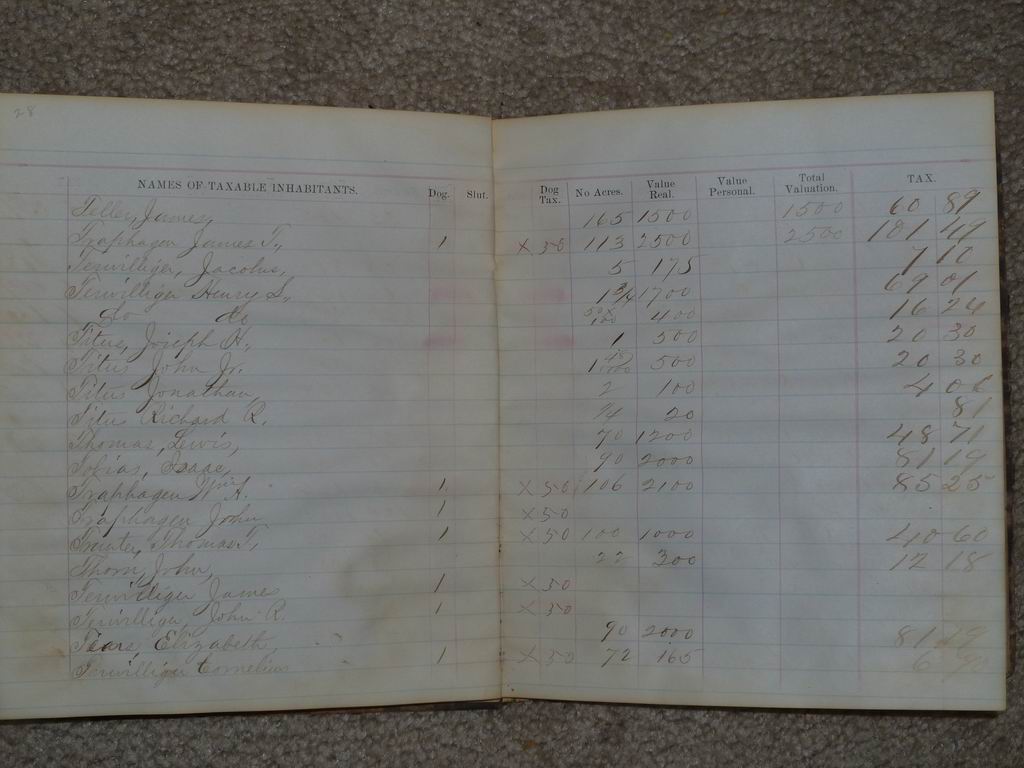 28
NAMES OF TAXABLE INHABITANTS. Dog. Slut. Dog Tax. No Acres. Value Real. Value Personal. Total Valuation. TAX.
Tiller, James, 165 1500 1500 60 89
Traphagen James T., 1 X 50 113 2500 2500 101 49
Terwilliger, Jacobus, 5 175 7 10
Terwilliger Henry S., 1 3/4 1700 69 01
Do Do 50x100 400 16 24
Titus, Joseph H, 1 500 20 30
Titus John Jr. 1 500 20 30
Titus Jonathan, 2 100 4 06
Titus Richard R. 1/4 20 81
Thomas, Lewis, 70 1200 48 71
Tobias, Isaac, 90 2000 81 19
Traphagen Wm H. 1 X 50 106 2100 85 25
Traphagen John 1 X 50
Thomas T, 1 X 50 100 1000 40 60
Thorn, John, 22 300 12 18
Terwilliger James 1 X 50
Terwilliger, John R. 1 X 50
Tears, Elizabeth, 90 2000 81 19
Terwilliger Cornelius 1 X 50 72 165 6 90